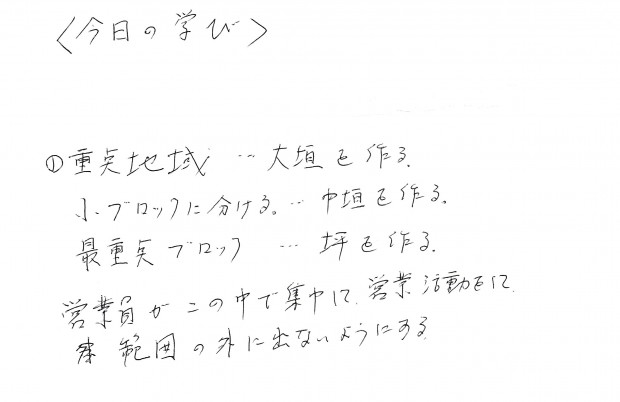 〈今日の学び〉
①重点地域 … 大垣を作る.
小ブロックに分ける。… 中垣を作る.
最重点ブロック … 坪を作る.
営業員がこの中で集中して営業活動をして.
範囲の外に出ないようにする.